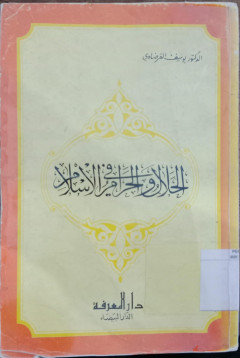 الدكتور يوسف القرضاوي
الحلال والحرام في الإسلام
دار المعرفة
الدار البيضاء